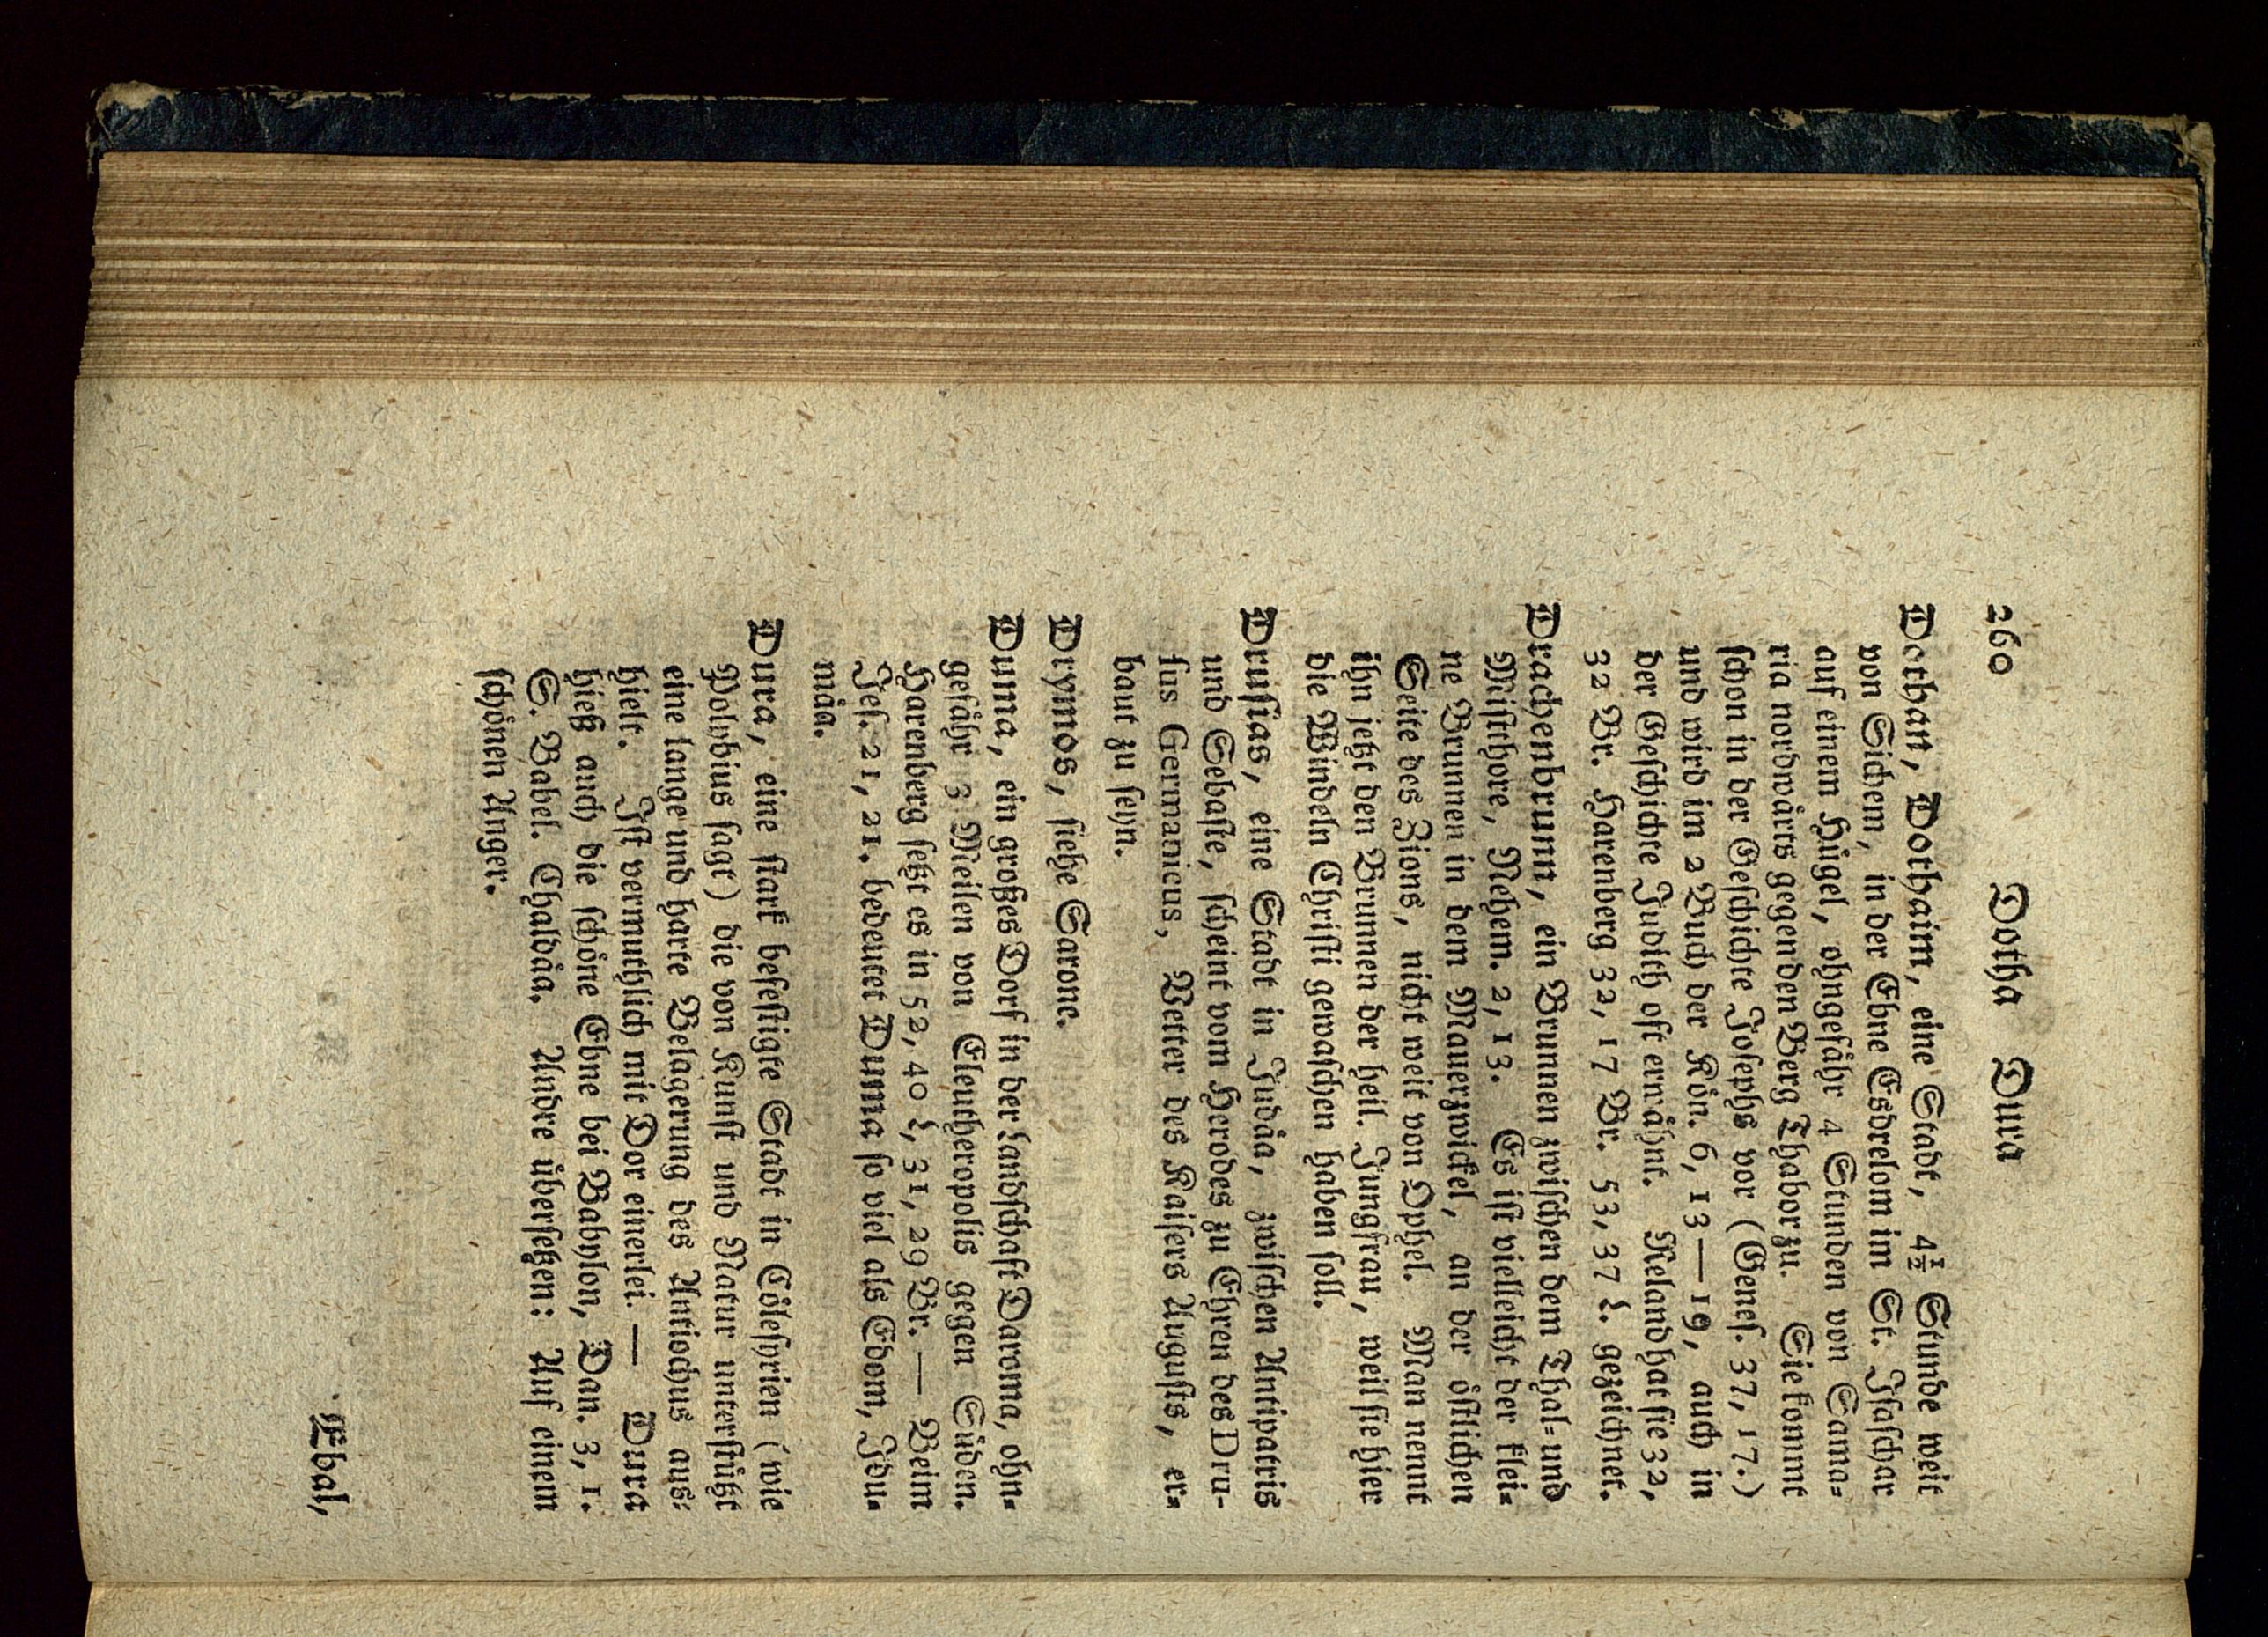 260 Dotha Dura
Dothan, Dothaim, eine Stadt, 4½ Stunde weit
von Sichem, in der Ebne Esdrelom im St. Isaschar
auf einem Hügel, ohngefähr 4 Stunden von Sama-
ria nordwärts gegen den Berg Thabor zu. Sie kommt
schon in der Geschichte Josephs vor (Genes. 37, 17.)
und wird im 2 Buch der Kön. 6, 13 — 19, auch in
der Geschichte Judith oft erwähnt. Reland hat sie 32,
32 Br. Harenberg 32, 17 Br. 53, 37 L. gezeichnet.
Drachenbrunn, ein Brunnen zwischen dem Thal- und
Mistthore, Nehem. 2, 13. Es ist vielleicht der klei-
ne Brunnen in dem Mauerzwickel, an der östlichen
Seite des Zions, nicht weit von Ophel. Man nennt
ihn jetzt den Brunnen der heil. Jungfrau, weil sie hier
die Windeln Christi gewaschen haben soll.
Drusias, eine Stadt in Judäa, zwischen Antipatris
und Sebaste, scheint vom Herodes zu Ehren des Dru-
sus Germanicus, Vetter des Kaisers Augusts, er-
baut zu seyn.
Drymos, siehe Sarone.
Duma, ein großes Dorf in der Landschaft Daroma, ohn-
gefähr 3 Meilen von Eleutheropolis gegen Süden.
Harenberg setzt es in 52, 40 L, 31, 29 Br. — Beim
Jes. 21, 21. bedeutet Duma so viel als Edom, Idu-
mäa.
Dura, eine stark befestigte Stadt in Cölesyrien (wie
Polybius sagt) die von Kunst und Natur unterstützt
eine lange und harte Belagerung des Antiochus aus-
hielt. Ist vermuthlich mit Dor einerlei. — Dura
hieß auch die schöne Ebne bei Babylon, Dan. 3, 1.
S. Babel. Chaldäa. Andre übersetzen: Auf einem
schönen Anger.
Ebal,